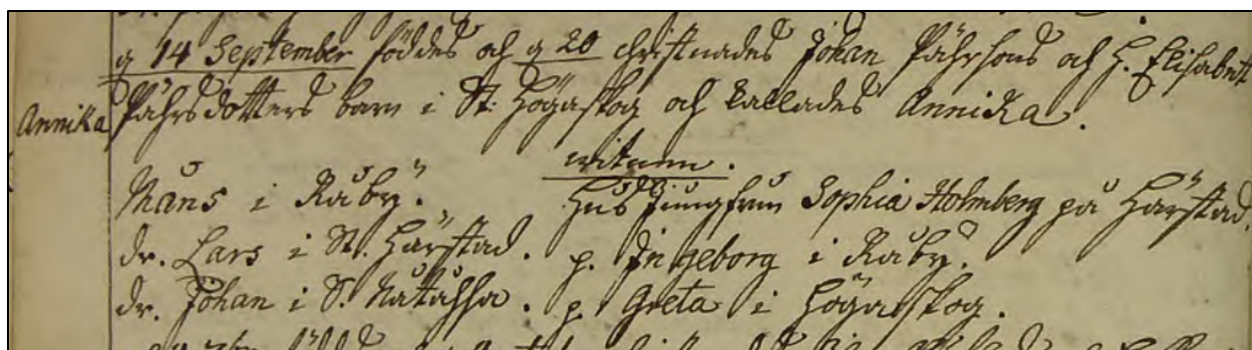 q 14 September föddes och q 20 christnades Johan Pährsons och H. Elisabeth
Annika Pährsdotters barn i St: Högaskog och kallades Annika.
witnen.
Måns i Råby. Hus Jungfrun Sophia Holmberg på Härstad.
dr. Lars i St. Härstad. p. Ingeborg i Råby.
dr. Johan i S. p. Greta i Högaskog.